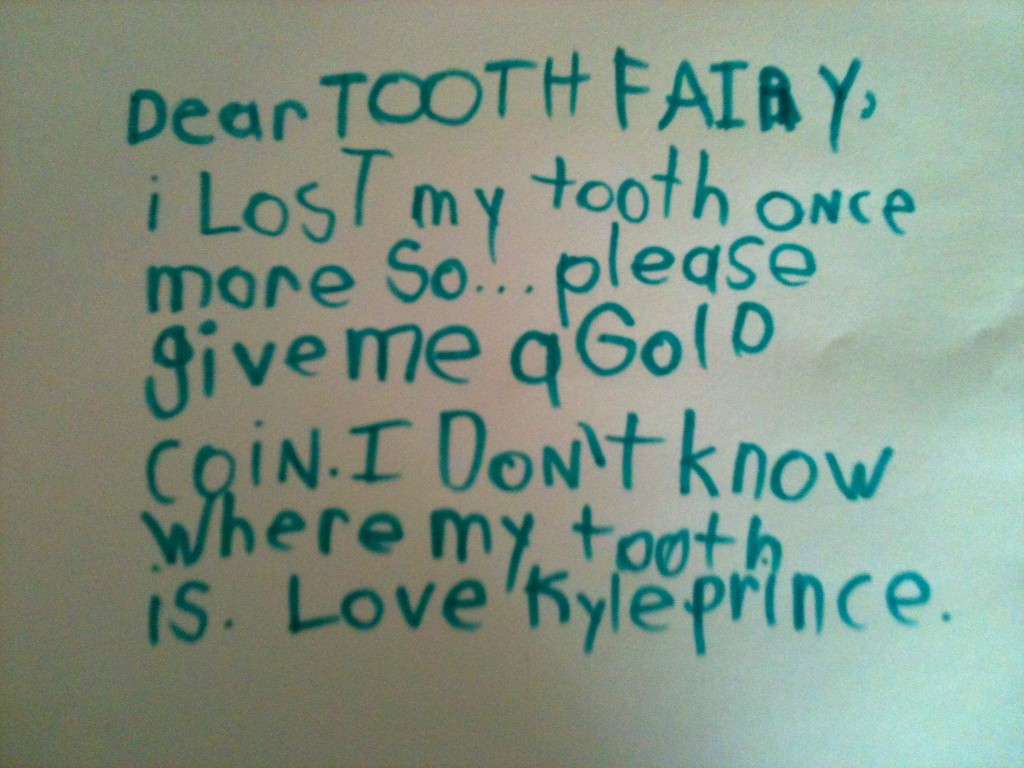 Dear TOOTH FAIRY,
i LosT my tooth oNce
more So... please
give me a GolD
coiN. I DoN't know
where my tooth
is. Love Kyle prince.